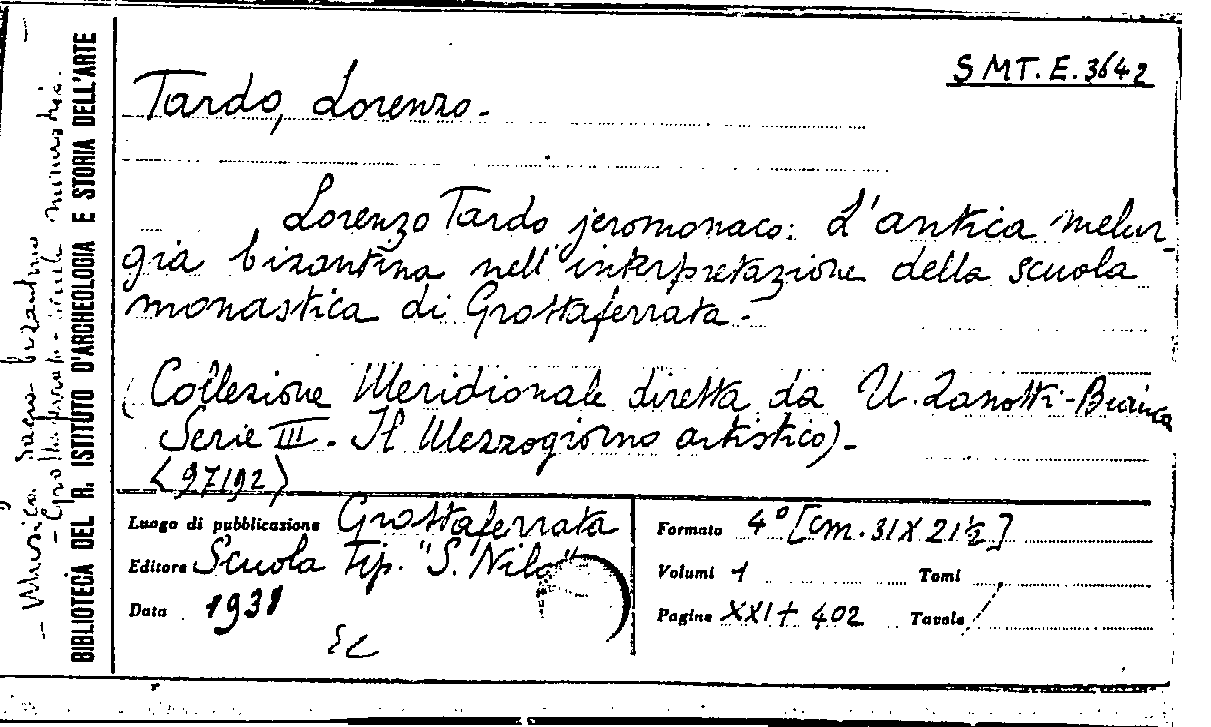 SMT. E. 3642
Tardo, Lorenzo.-
Lorenzo Tardo jeromonaco: L'antica melur-
gia bizantina nell'interpretazione della scuola
monastica di Grottaferrata.-
(Collezione Meridionale diretta da U. Zanotti-Bianco
Serie III - Il Mezzogiorno artistico).-
<97192>
Luogo di pubblicazione Grottaferrata
Editore Scuola Tip. "S. Nilo"
Data 1931
Formato 4° [cm. 31 X 21½]
Volumi 1 Tomi
Pagine XXI + 402 Tavole /
— Musica sacra bizantina —
- Grottaferrata -
BIBLIOTECA DEL R. ISTITUTO D'ARCHEOLOGIA E STORIA DELL'ARTE